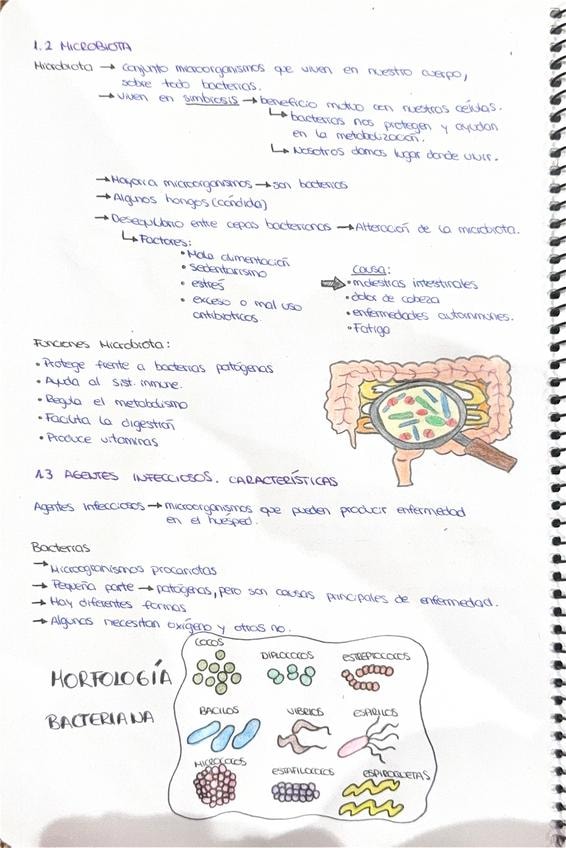 1.2 MICROBIOTA
Microbiota → conjunto microorganismos que viven en nuestro cuerpo,
sobre todo bacterias.
→ viven en simbiosis → beneficio mutuo con nuestras células.
↳ bacterias nos protegen y ayudan
en la metabolización.
↳ Nosotros damos lugar donde vivir.
→ Mayoría microorganismos → son bacterias
→ Algunos hongos (cándida)
→ Desequilibrio entre cepas bacterianas → Alteración de la microbiota.
↳ Factores:
• Mala alimentación
• sedentarismo
• estrés
• exceso o mal uso
antibióticos.
causa:
➡ • molestias intestinales
• dolor de cabeza
• enfermedades autoinmunes.
• Fatiga
Funciones Microbiota:
• Protege frente a bacterias patógenas
• Ayuda al sist. inmune.
• Regula el metabolismo
• Facilita la digestión
• Produce vitaminas
1.3 AGENTES INFECCIOSOS. CARACTERÍSTICAS
Agentes infecciosos → microorganismos que pueden producir enfermedad
en el huésped.
Bacterias
→ Microorganismos procariotas
→ Pequeña parte → patógenas, pero son causas principales de enfermedad.
→ Hay diferentes formas
→ Algunas necesitan oxígeno y otras no.
MORFOLOGÍA
BACTERIANA
COCOS
DIPLOCOCOS
ESTREPTOCOCOS
BACILOS
VIBRIOS
ESPIRILOS
MICROCOCOS
ESTAFILOCOCOS
ESPIROQUETAS